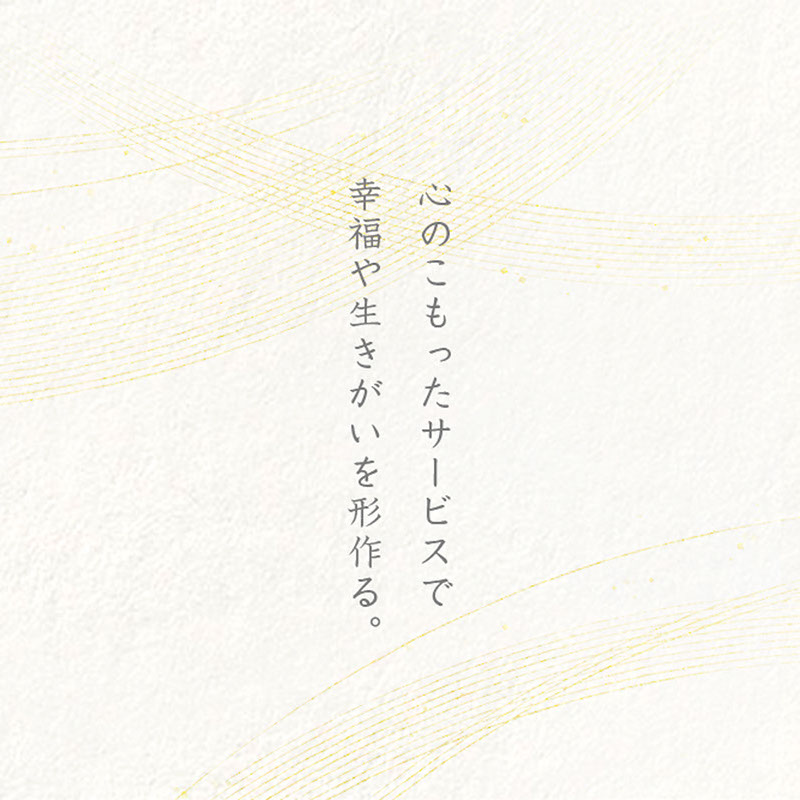 心のこもったサービスで
幸福や生きがいを形作る。